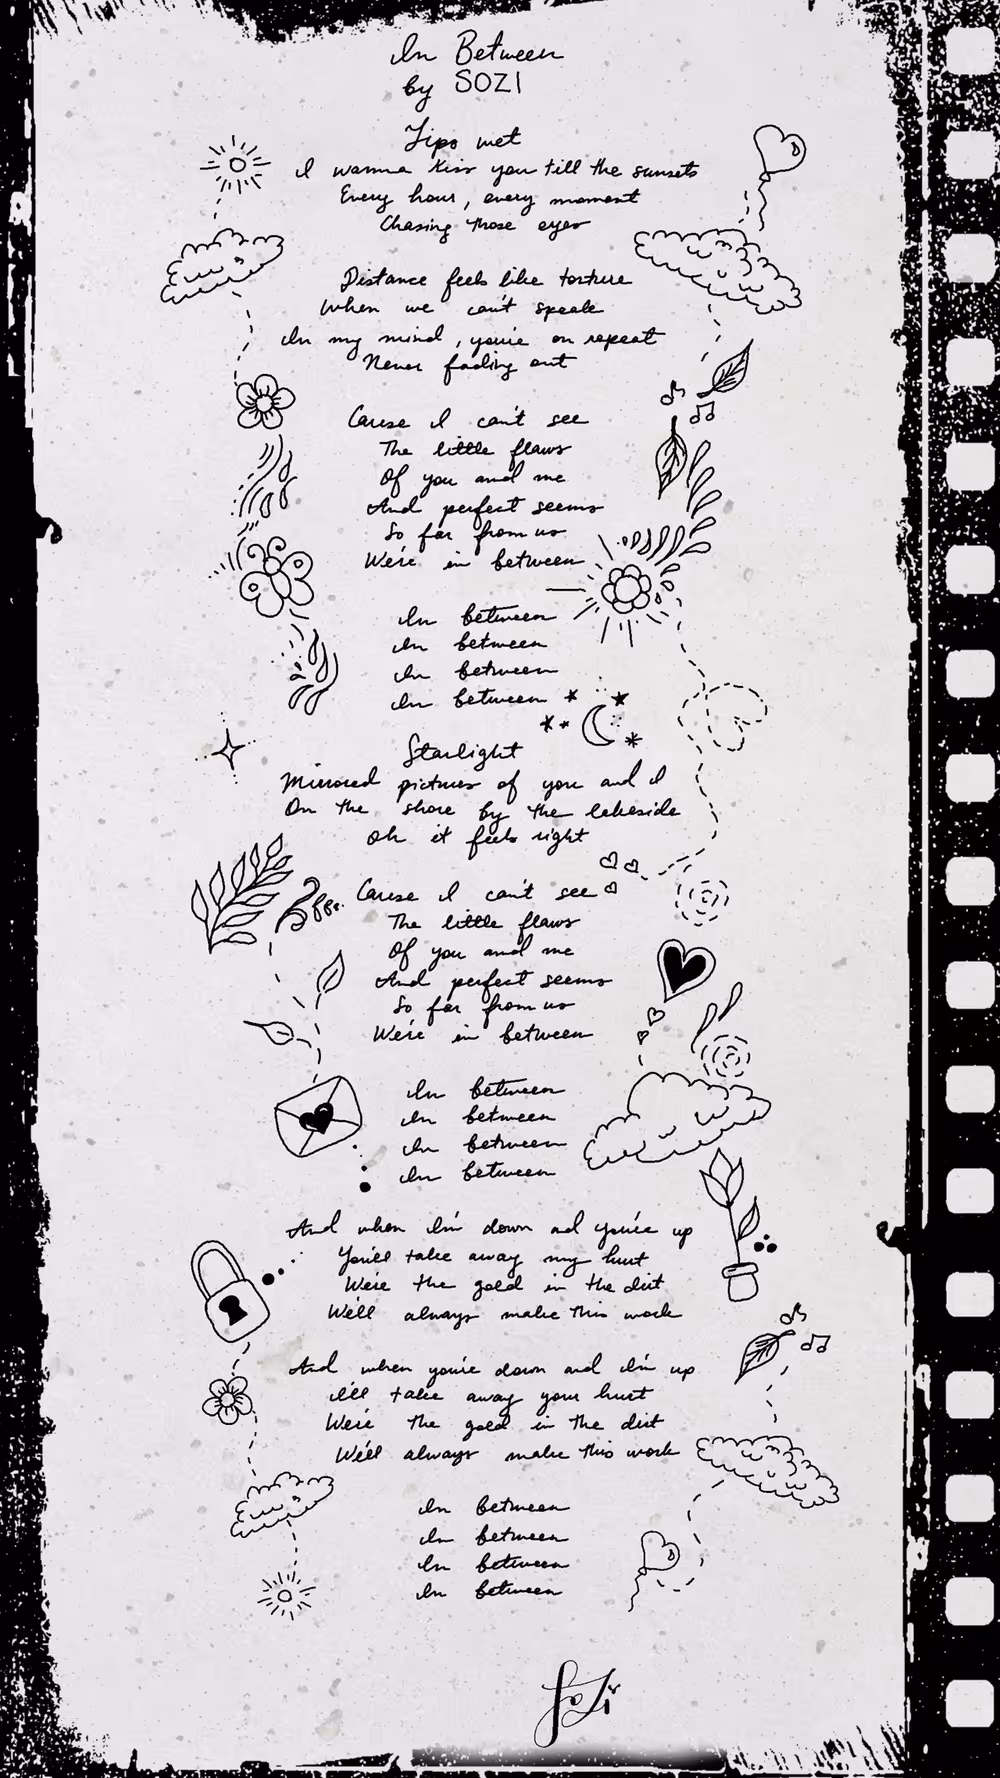 In Between
by SOZI
Lips met
I wanna kiss you till the sunsets
Every hour, every moment
Chasing those eyes
Distance feels like torture
When we can't speak
In my mind, you're on repeat
Never fading out
Cause I can't see
The little flaws
Of you and me
And perfect seems
So far from us
We're in between
In between
In between
In between
In between
Starlight
Mirrored pictures of you and I
On the shore by the lakeside
Oh it feels right
Cause I can't see
The little flaws
Of you and me
And perfect seems
So far from us
We're in between
In between
In between
In between
In between
And when I'm down ad you're up
You'll take away my hurt
We're the gold in the dirt
We'll always make this work
And when you're down and I'm up
I'll take away your hurt
We're the gold in the dirt
We'll always make this work
In between
In between
In between
In between
SoZi